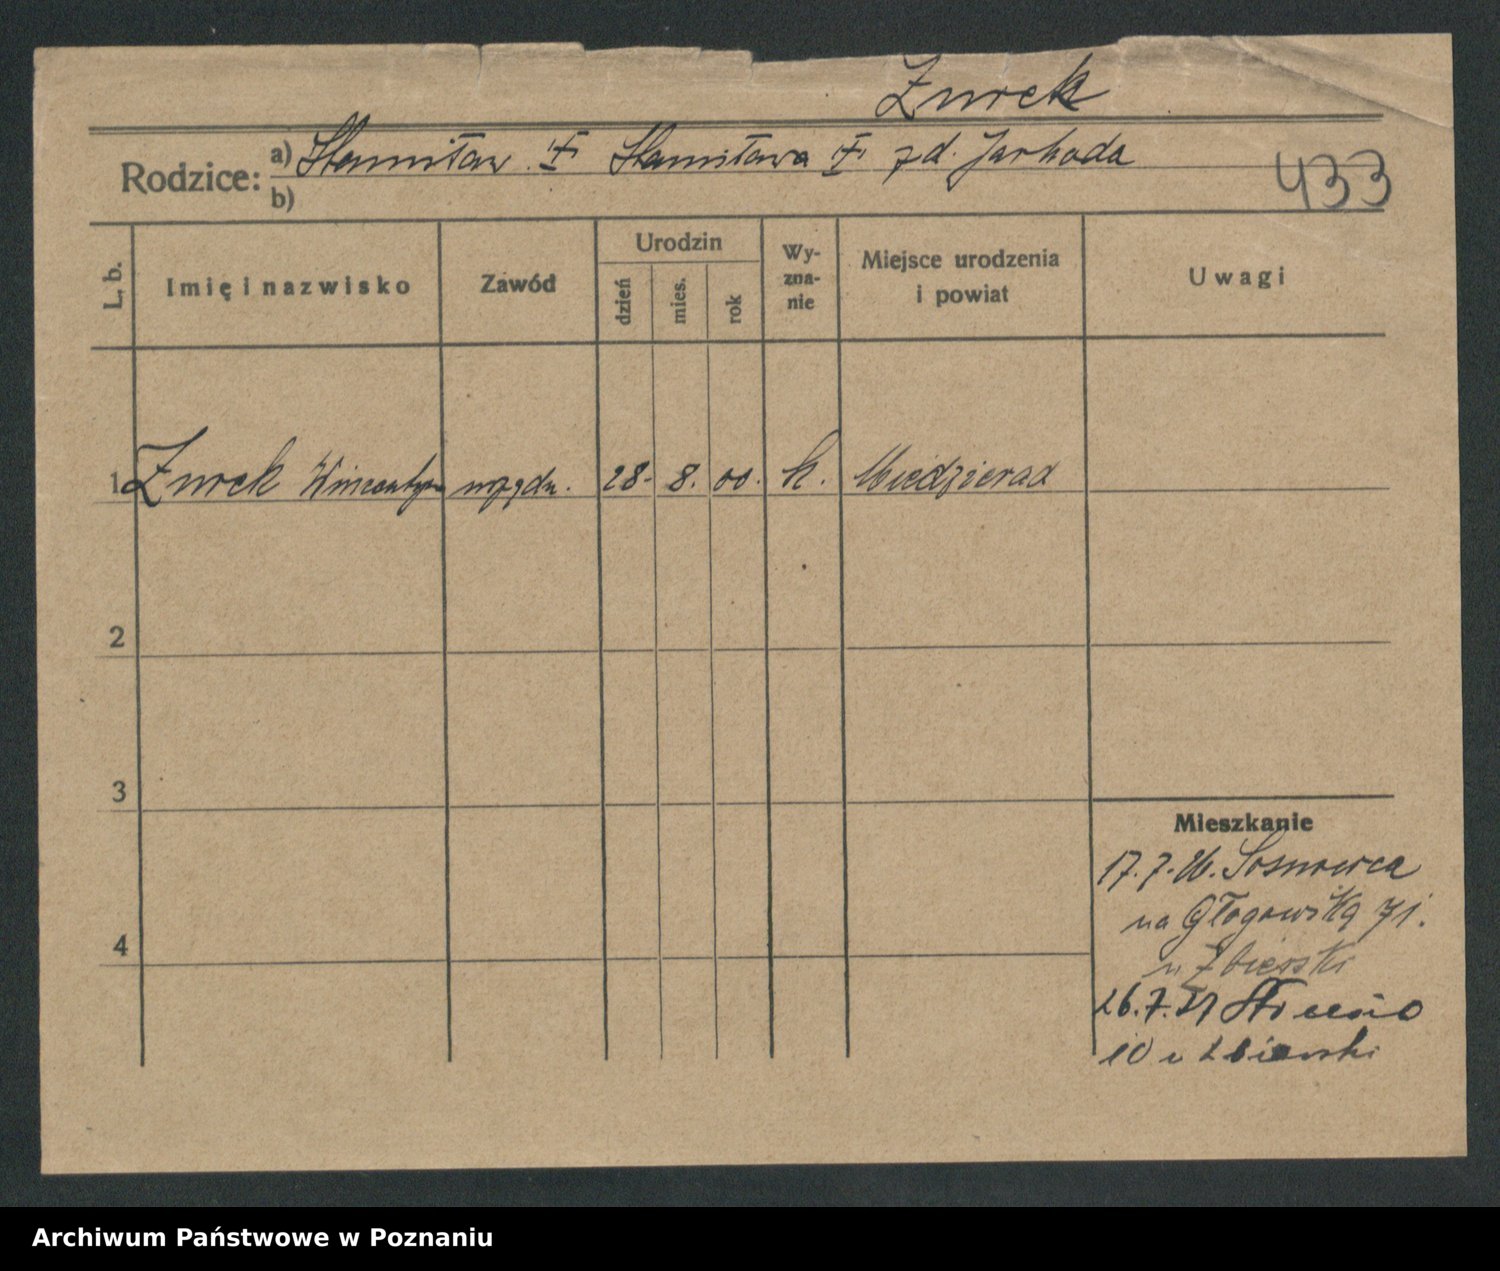 Żurek
Rodzice: a) Stanisław Stanisława z d. Jarhoda
b)
433
L. b. Imię i nazwisko Zawód Urodzin dzień mies. rok Wy-zna-nie Miejsce urodzenia i powiat Uwagi
1 Żurek Wincenty urzędn. 28. 8. 00. k. Miedzierad
2
3
Mieszkanie
17.7. Sosnowca
na Głogowską 71.
4
u Zbierski
26.7.
10 u Zbierski
Archiwum Państwowe w Poznaniu